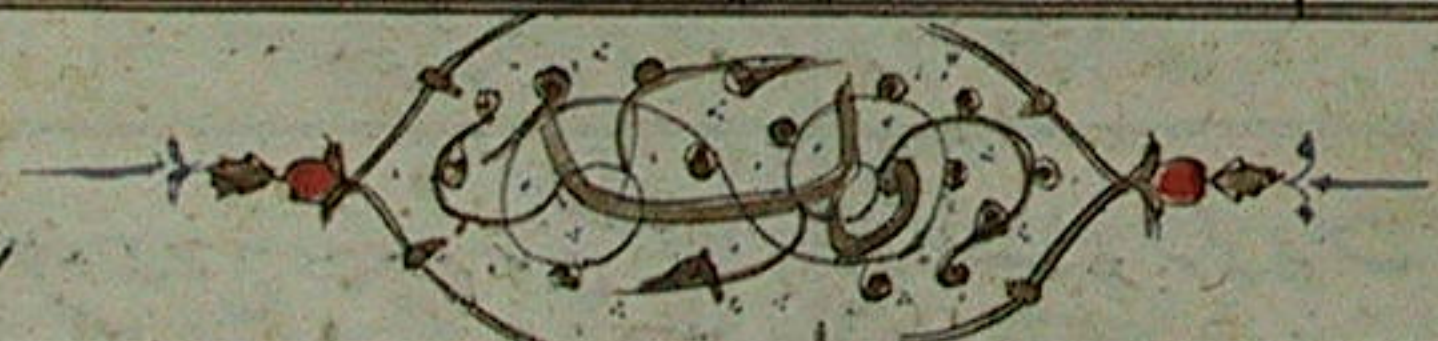 وله